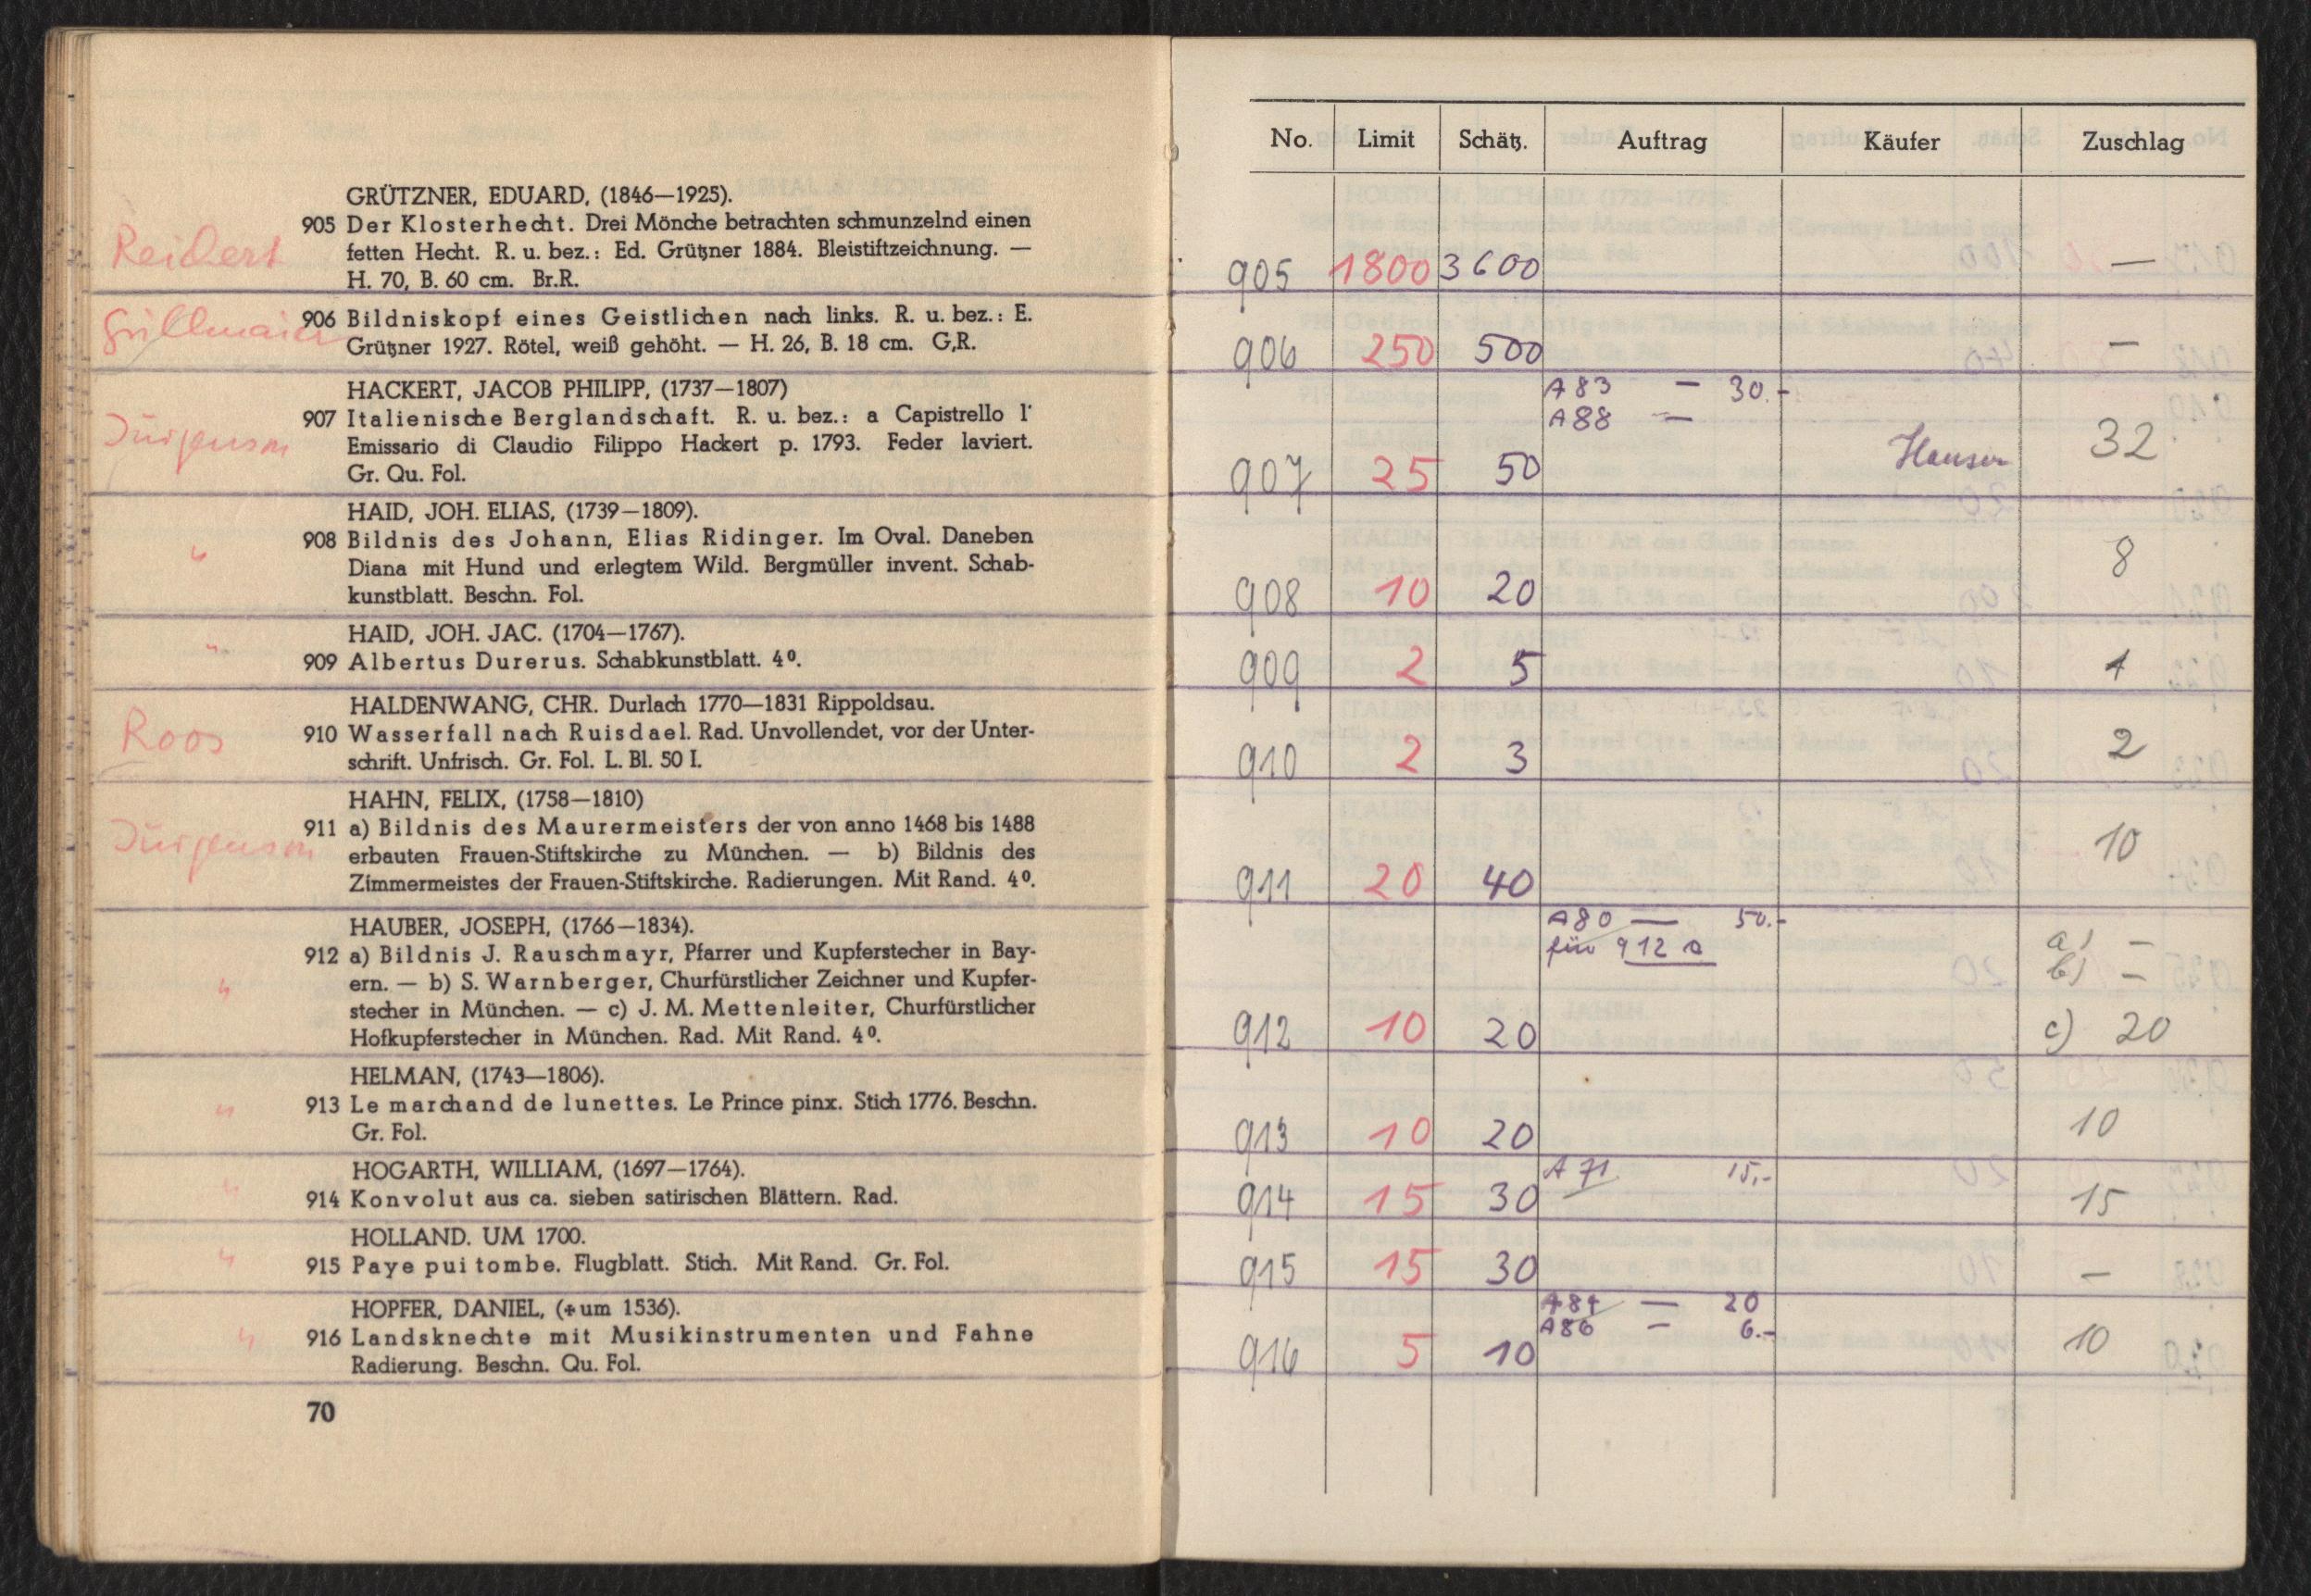 GRÜTZNER, EDUARD, (1846—1925).
905 Der Klosterhecht. Drei Mönche betrachten schmunzelnd einen
Reichert
fetten Hecht. R. u. bez.: Ed. Grützner 1884. Bleistiftzeichnung. —
H. 70, B. 60 cm. Br.R.
906 Bildniskopf eines Geistlichen nach links. R. u. bez.: E.
Grillmaier
Grützner 1927. Rötel, weiß gehöht. — H. 26, B. 18 cm. G,R.
HACKERT, JACOB PHILIPP, (1737—1807)
907 Italienische Berglandschaft. R. u. bez.: a Capistrello l'
Jürgenson
Emissario di Claudio Filippo Hackert p. 1793. Feder laviert.
Gr. Qu. Fol.
HAID, JOH. ELIAS, (1739—1809).
" 908 Bildnis des Johann, Elias Ridinger. Im Oval. Daneben
Diana mit Hund und erlegtem Wild. Bergmüller invent. Schab-
kunstblatt. Beschn. Fol.
HAID, JOH. JAC. (1704—1767).
" 909 Albertus Durerus. Schabkunstblatt. 4⁰.
HALDENWANG, CHR. Durlach 1770—1831 Rippoldsau.
Roos 910 Wasserfall nach Ruisdael. Rad. Unvollendet, vor der Unter-
schrift. Unfrisch. Gr. Fol. L. Bl. 50 I.
HAHN, FELIX, (1758—1810)
911 a) Bildnis des Maurermeisters der von anno 1468 bis 1488
Jürgenson
erbauten Frauen-Stiftskirche zu München. — b) Bildnis des
Zimmermeistes der Frauen-Stiftskirche. Radierungen. Mit Rand. 4⁰.
HAUBER, JOSEPH, (1766—1834).
912 a) Bildnis J. Rauschmayr, Pfarrer und Kupferstecher in Bay-
" ern. — b) S. Warnberger, Churfürstlicher Zeichner und Kupfer-
stecher in München. — c) J. M. Mettenleiter, Churfürstlicher
Hofkupferstecher in München. Rad. Mit Rand. 4⁰.
HELMAN, (1743—1806).
" 913 Le marchand de lunettes. Le Prince pinx. Stich 1776. Beschn.
Gr. Fol.
HOGARTH, WILLIAM, (1697—1764).
" 914 Konvolut aus ca. sieben satirischen Blättern. Rad.
HOLLAND. UM 1700.
" 915 Paye pui tombe. Flugblatt. Stich. Mit Rand. Gr. Fol.
HOPFER, DANIEL, (+ um 1536).
" 916 Landsknechte mit Musikinstrumenten und Fahne
Radierung. Beschn. Qu. Fol.
70
No. Limit Schätz. Auftrag Käufer Zuschlag
905 1800 3600 —
906 250 500 —
A 83 — 30.-
A 88 —
907 25 50 Hauser 32
908 10 20 8
909 2 5 4
910 2 3 2
911 20 40 10
A 80 — 50.-
für 912 a
a) —
b) —
912 10 20 c) 20
913 10 20 10
A 71 15,-
914 15 30 15
915 15 30 —
A 84 — 20
A 86 — 6.-
916 5 10 10